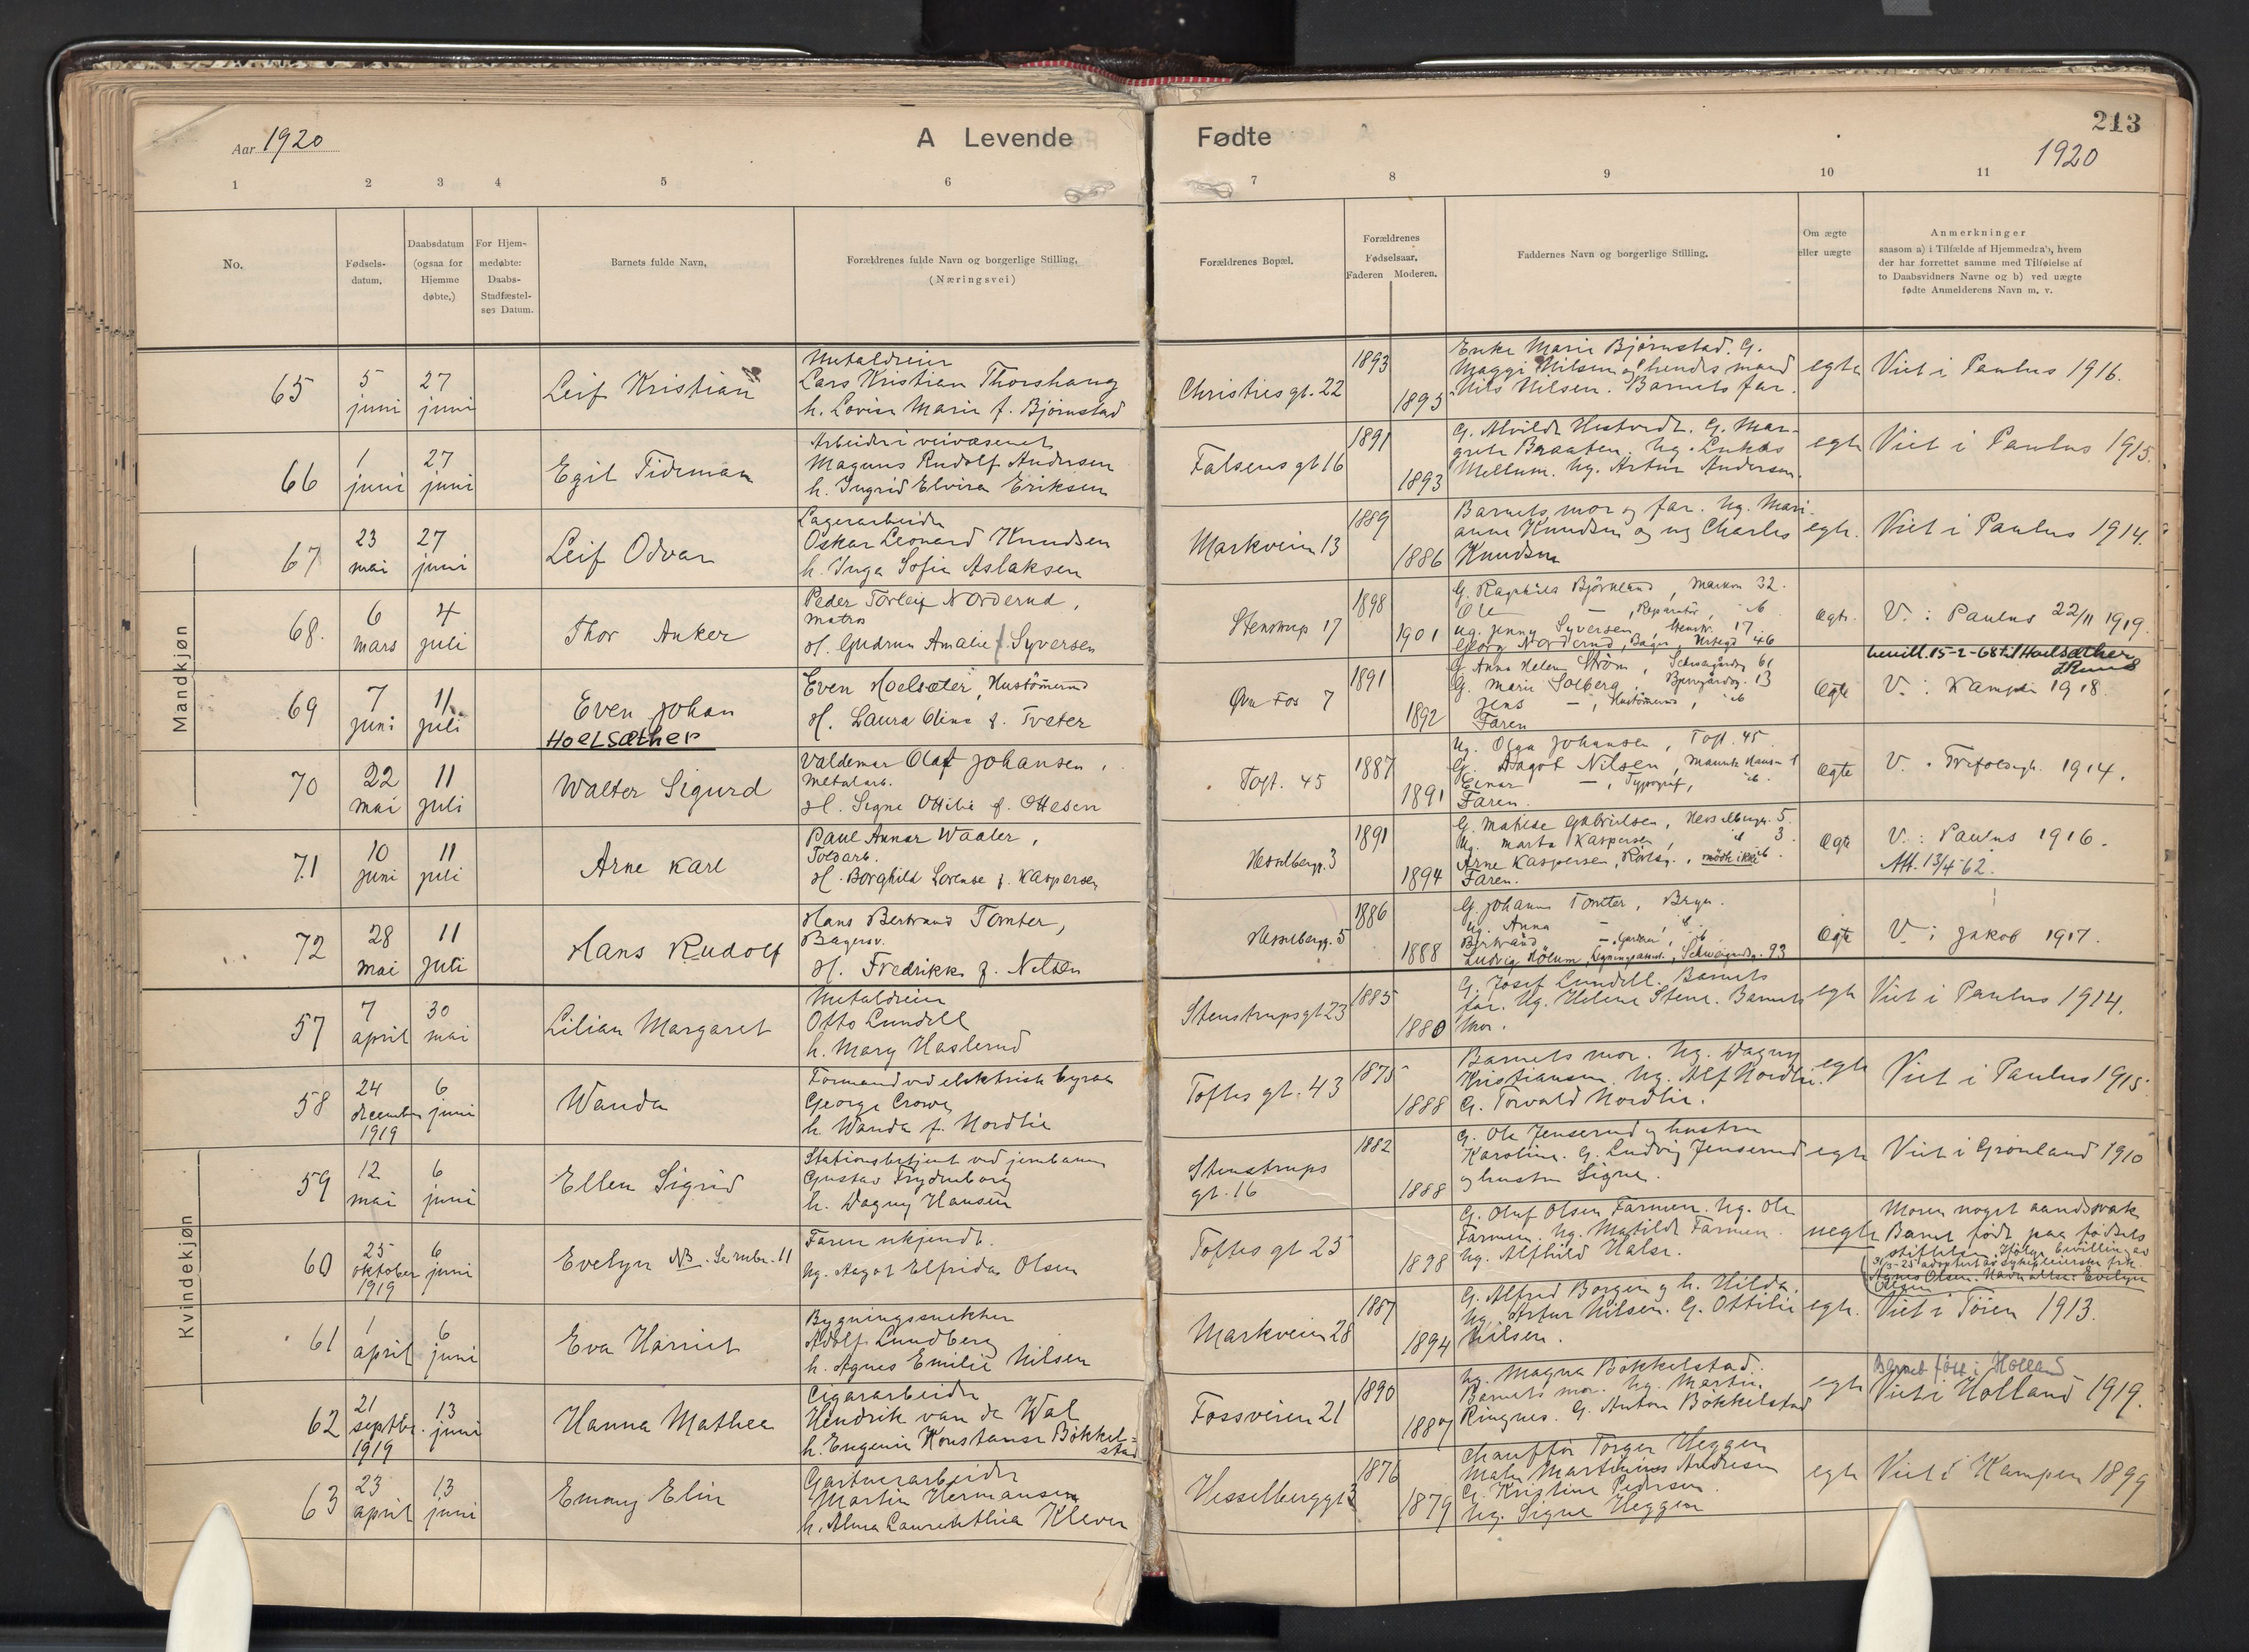 Aar 1920
A Levende
Fødte
213
1920
1 2 3 4 5 6 7 8 9 10 11
No.
Fødsels-
datum.
Daabsdatum
(ogsaa for
Hjemme
døbte.)
For Hjem-
medøbte:
Daabs-
Stadfæstel-
ses Datum.
Barnets fulde Navn.
Forældrenes fulde Navn og borgerlige Stilling.
(Næringsvei)
Forældrenes Bopæl.
Forældrenes
Fødselsaar.
Faderen Moderen.
Faddernes Navn og borgerlige Stilling.
Om ægte
eller uægte
Anmerkninger
saasom a) i Tilfælde af Hjemmedaab, hvem
der har forrettet samme med Tilføielse af
to Daabsvidners Navne og b) ved uægte
fødte Anmelderens Navn m. v.
Mandkjøn
65
5
juni
27
juni
Leif Kristian
Metaldreier
Lars Kristian Thorshaug
h. Lovise Marie f. Bjørnstad
Christies gt. 22
1893
1895
Enke Marie Bjørnstad. G.
Maggi Nilsen og hendes mand
Nils Nilsen. Barnets far.
egte
Viet i Paulus 1916.
66
1
juni
27
juni
Egil Tideman
Arbeider i veivæsenet
Magnus Rudolf Andersen
h. Ingrid Elvira Eriksen
Falsens gt 16
1891
1893
G. Alvilde G. Mar-
grete Braaten. Ug. Lukas
Mellum. Ug. Artur Andersen.
egte
Viet i Paulus 1915.
67
23
mai
27
juni
Leif Odvar
Lagerarbeider
Oskar Leonard Knudsen
h. Inga Sofie Aslaksen
Markveien 13
1889
1886
Barnets mor og far. Ug. Mari-
anne Knudsen og ug Charles
Knudsen
egte.
Viet i Paulus 1914.
68.
6
mars
4
juli
Thor Anker
Peder Torleif Norderud,
Matros
H. Gudrun Amalie f. Syversen
Stenstrup 17
1898
1901
G. Ragnhild Bjørnland, Markvn 32.
Ole — , Reparatør, ib
Ug. Jenny Syversen, Stenstr. 17.
Georg Norderud, Bager, 46
Ægte.
V. i Paulus 22/11 1919.
69
7
juni
11
juli
Even Johan
Hoelsæther
Even Hoelsæter, Hustømrer
H. Laura Oline f. Tveter
Øvre Fos 7
1891
1892
G. Anna Helene Strøm, Schweigårdsg 61
G. Marie Solberg, 13
Jens — , Hustømrer, ib
Faren
Ægte
bevill. 15-2-68 til Hoelsæther
V. i Kampen 1918.
70
22
mai
11
juli
Walter Sigurd
Valdemar Olaf Johansen,
Metalarb.
H. Signe Ottilie f. Ottesen
Toft. 45
1887
1891
Ug. Olga Johansen, Toft. 45.
G. Dagot Nilsen, Hansn 1
Einar — , Typograf, ib.
Faren.
Ægte
V. i Trefoldigh. 1914.
71
10
juni
11
juli
Arne Karl
Paul Annar Waaler,
Toldarb.
H. Borghild Lorense f. Kaspersen
Hesselbergg. 3
1891
1894
G. Matilde Gabrielsen, Hesselbergg. 5.
Ug. Marta Kaspersen, ib 3.
Arne Kaspersen, Rørlæg., mødte ikke ib.
Faren.
Ægte
V. i Paulus 1916.
Att. 13/4 62.
72
28
mai
11
juli
Hans Rudolf
Hans Bertrand Tomter,
Bagersv.
H. Fredrikke f. Nelsen
Hesselbergg. 5
1886
1888
G. Johanne Tomter, Bryn.
Ug. Anna — ib
Bertrand — , Gartner, ib
Ludvig Holum, Schweigaardsg. 93
Ægte
V. i Jakob 1917.
Kvindekjøn
57
7
april
30
mai
Lilian Margaret
Metaldreier
Otto Lundell
h. Mary Haslerud
Stenstrupsgt 23
1885
1880
G. Josef Lundell. Barnets
far. Ug. Helene Stene. Barnets
mor.
egte
Viet i Paulus 1914.
58
24
december
1919
6
juni
Wanda
Formand ved elektrisk byraa
George Crowe
h. Wanda f. Nordlie
Toftes gt. 43
1875
1888
Barnets mor. Ug. Dagny
Kristiansen. Ug. Alf Nordlie.
G. Torvald Nordlie.
egte
Viet i Paulus 1915.
59
12
mai
6
juni
Ellen Sigrid
Stationsbetjent ved jernbanen
Gustav Frydenborg
h. Dagny Hansen
Stenstrups
gt. 16
1882
1888
G. Ole Jenserud og hustru
Karoline. G. Ludvig Jenserud
og hustru Signe.
egte
Viet i Grønland 1910
60
25
oktober
1919
6
juni
Evelyn NB. Se rubr. 11
Faren ukjendt.
Ug. Aagot Elfrida Olsen
Toftes gt 25
1898
G. Oluf Olsen Farmen. Ug. Ole
Farmen. Ug. Matilde Farmen.
Ug. Alfhild Halse.
uegte
Moren noget aandssvak
Barnet født paa fødsels
stiftelsen. Ifølge bevilling av
-25 adoptert av sykepleierske frk.
Agnes Olsen. Navn altsaa: Evelyn
Olsen
61
1
april
6
juni
Eva Harriet
Bygningssnekker
Adolf Lundberg
h. Agnes Emilie Nilsen
Markveien 28
1887
1894
G. Alfred Borgen og h. Hilda.
Ug. Artur Nilsen. G. Ottilie
Nilsen.
egte.
Viet i Tøien 1913.
62
21
septbr.
1919
13
juni
Hanna Mathea
Cigararbeider
Hendrik van de Wal
h. Eugenie Konstanse Bøkkel-
stad
Fossveien 21
1890
1887
Ug. Magna Bøkkelstad.
Barnets mor. Ug. Martin
Ringnes. G. Anton Bøkkelstad
egte
Barnet født i Holland
Viet i Holland 1919.
63
23
april
13
juni
Emmy Elin
Gartnerarbeider
Martin Hermansen
h. Alma Laurenthie Kleven
Hesselberggt 3
1876
1879
Chauffør Torger Heggen
Maler Martinius Andresen
G. Kristine Pedersen.
Ug. Signe Heggen
egte
Viet i Kampen 1899